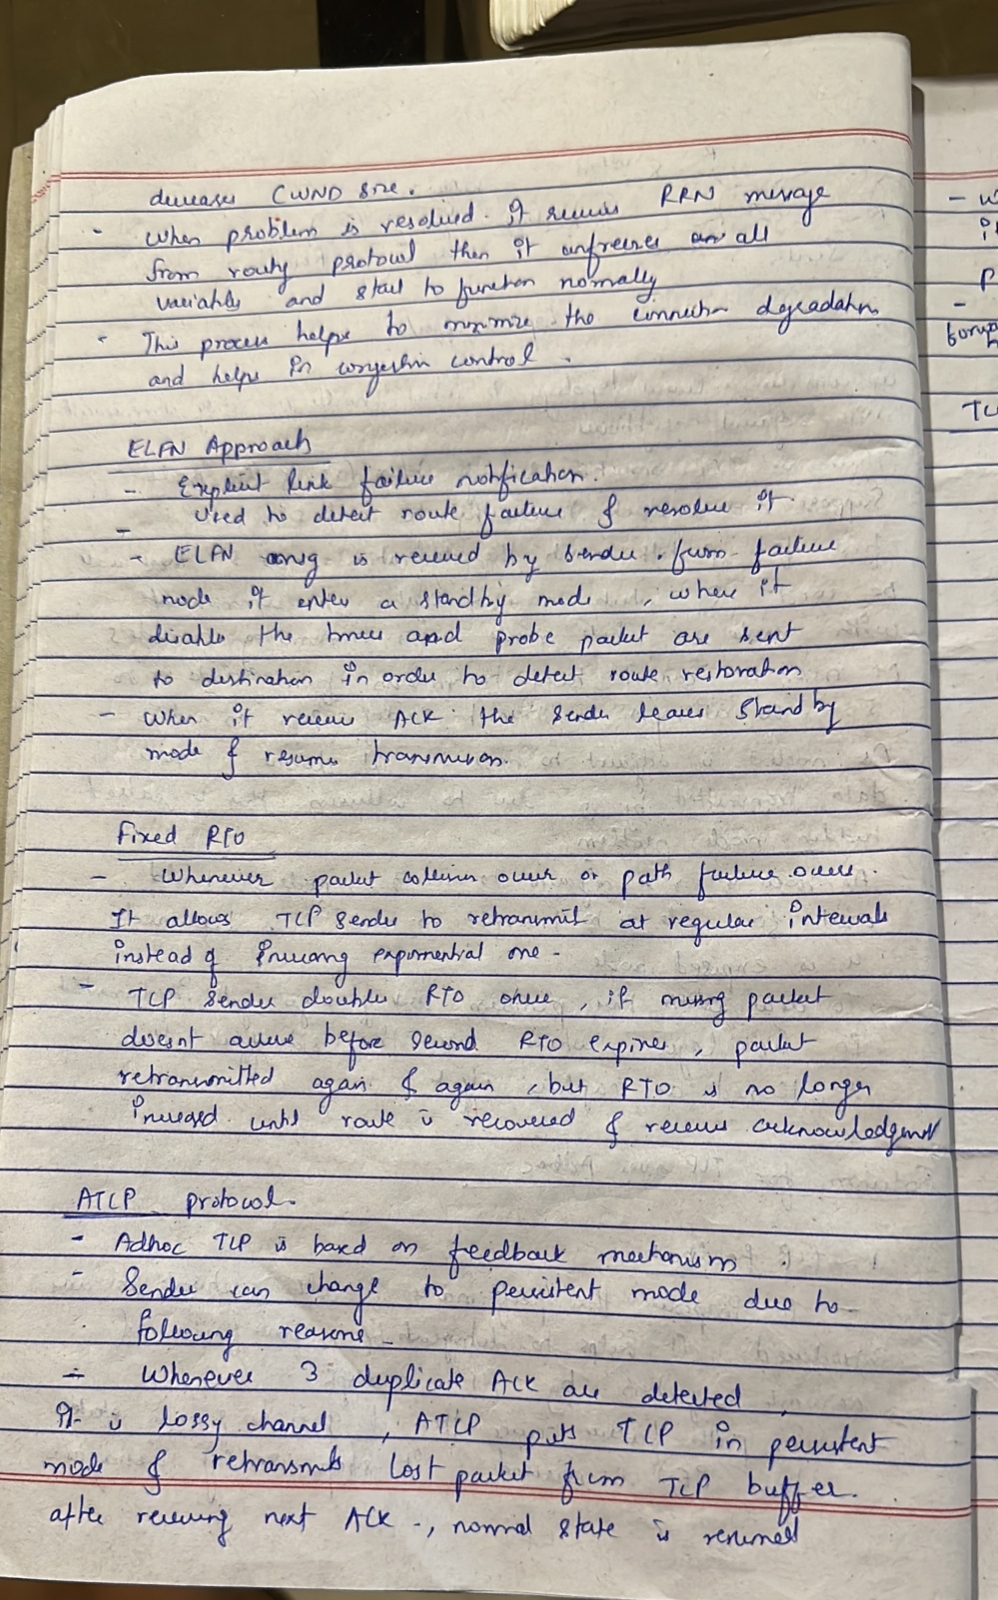 decreases CWND size.
- When problem is resolved. It receives RRN message
from routing protocol then it unfreezes all
variables and start to function normally
- This process helps to minimize the connection degradation
and helps in congestion control.
ELFN Approach
- Explicit link failure notification.
- Used to detect route failure & resolve it
- ELFN msg is received by sender from failure
node it enter a standby mode, where it
disable the timer and probe packet are sent
to destination in order to detect route restoration
- When it receive ACK the sender leaves standby
mode & resume transmission.
Fixed RTO
- Whenever packet collision occur or path failure occur.
It allows TCP sender to retransmit at regular intervals
instead of increasing exponential one -
- TCP sender double RTO once, if missing packet
doesnt arrive before second RTO expires, packet
retransmitted again & again, but RTO is no longer
increased until route is recovered & receives acknowledgment
ATCP protocol.
- Adhoc TCP is based on feedback mechanism.
- Sender can change to persistent mode due to
following reasons -
- Whenever 3 duplicate ACK are detected,
it is lossy channel, ATCP puts TCP in persistent
mode & retransmits lost packet from TCP buffer.
after receiving next ACK -, normal state is resumed